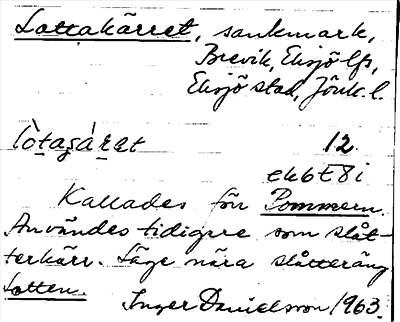 Lottakärret, sankmark,
Brevik, Eksjö lfs,
Eksjö stad, Jönk. l.
lòtaçá̱ret 12.
ek6E8i
Kallades för Pommern.
Användes tidigare som slåt-
terkärr. Läge nära slåtteräng
Lotten.
Inger Danielsson 1963.